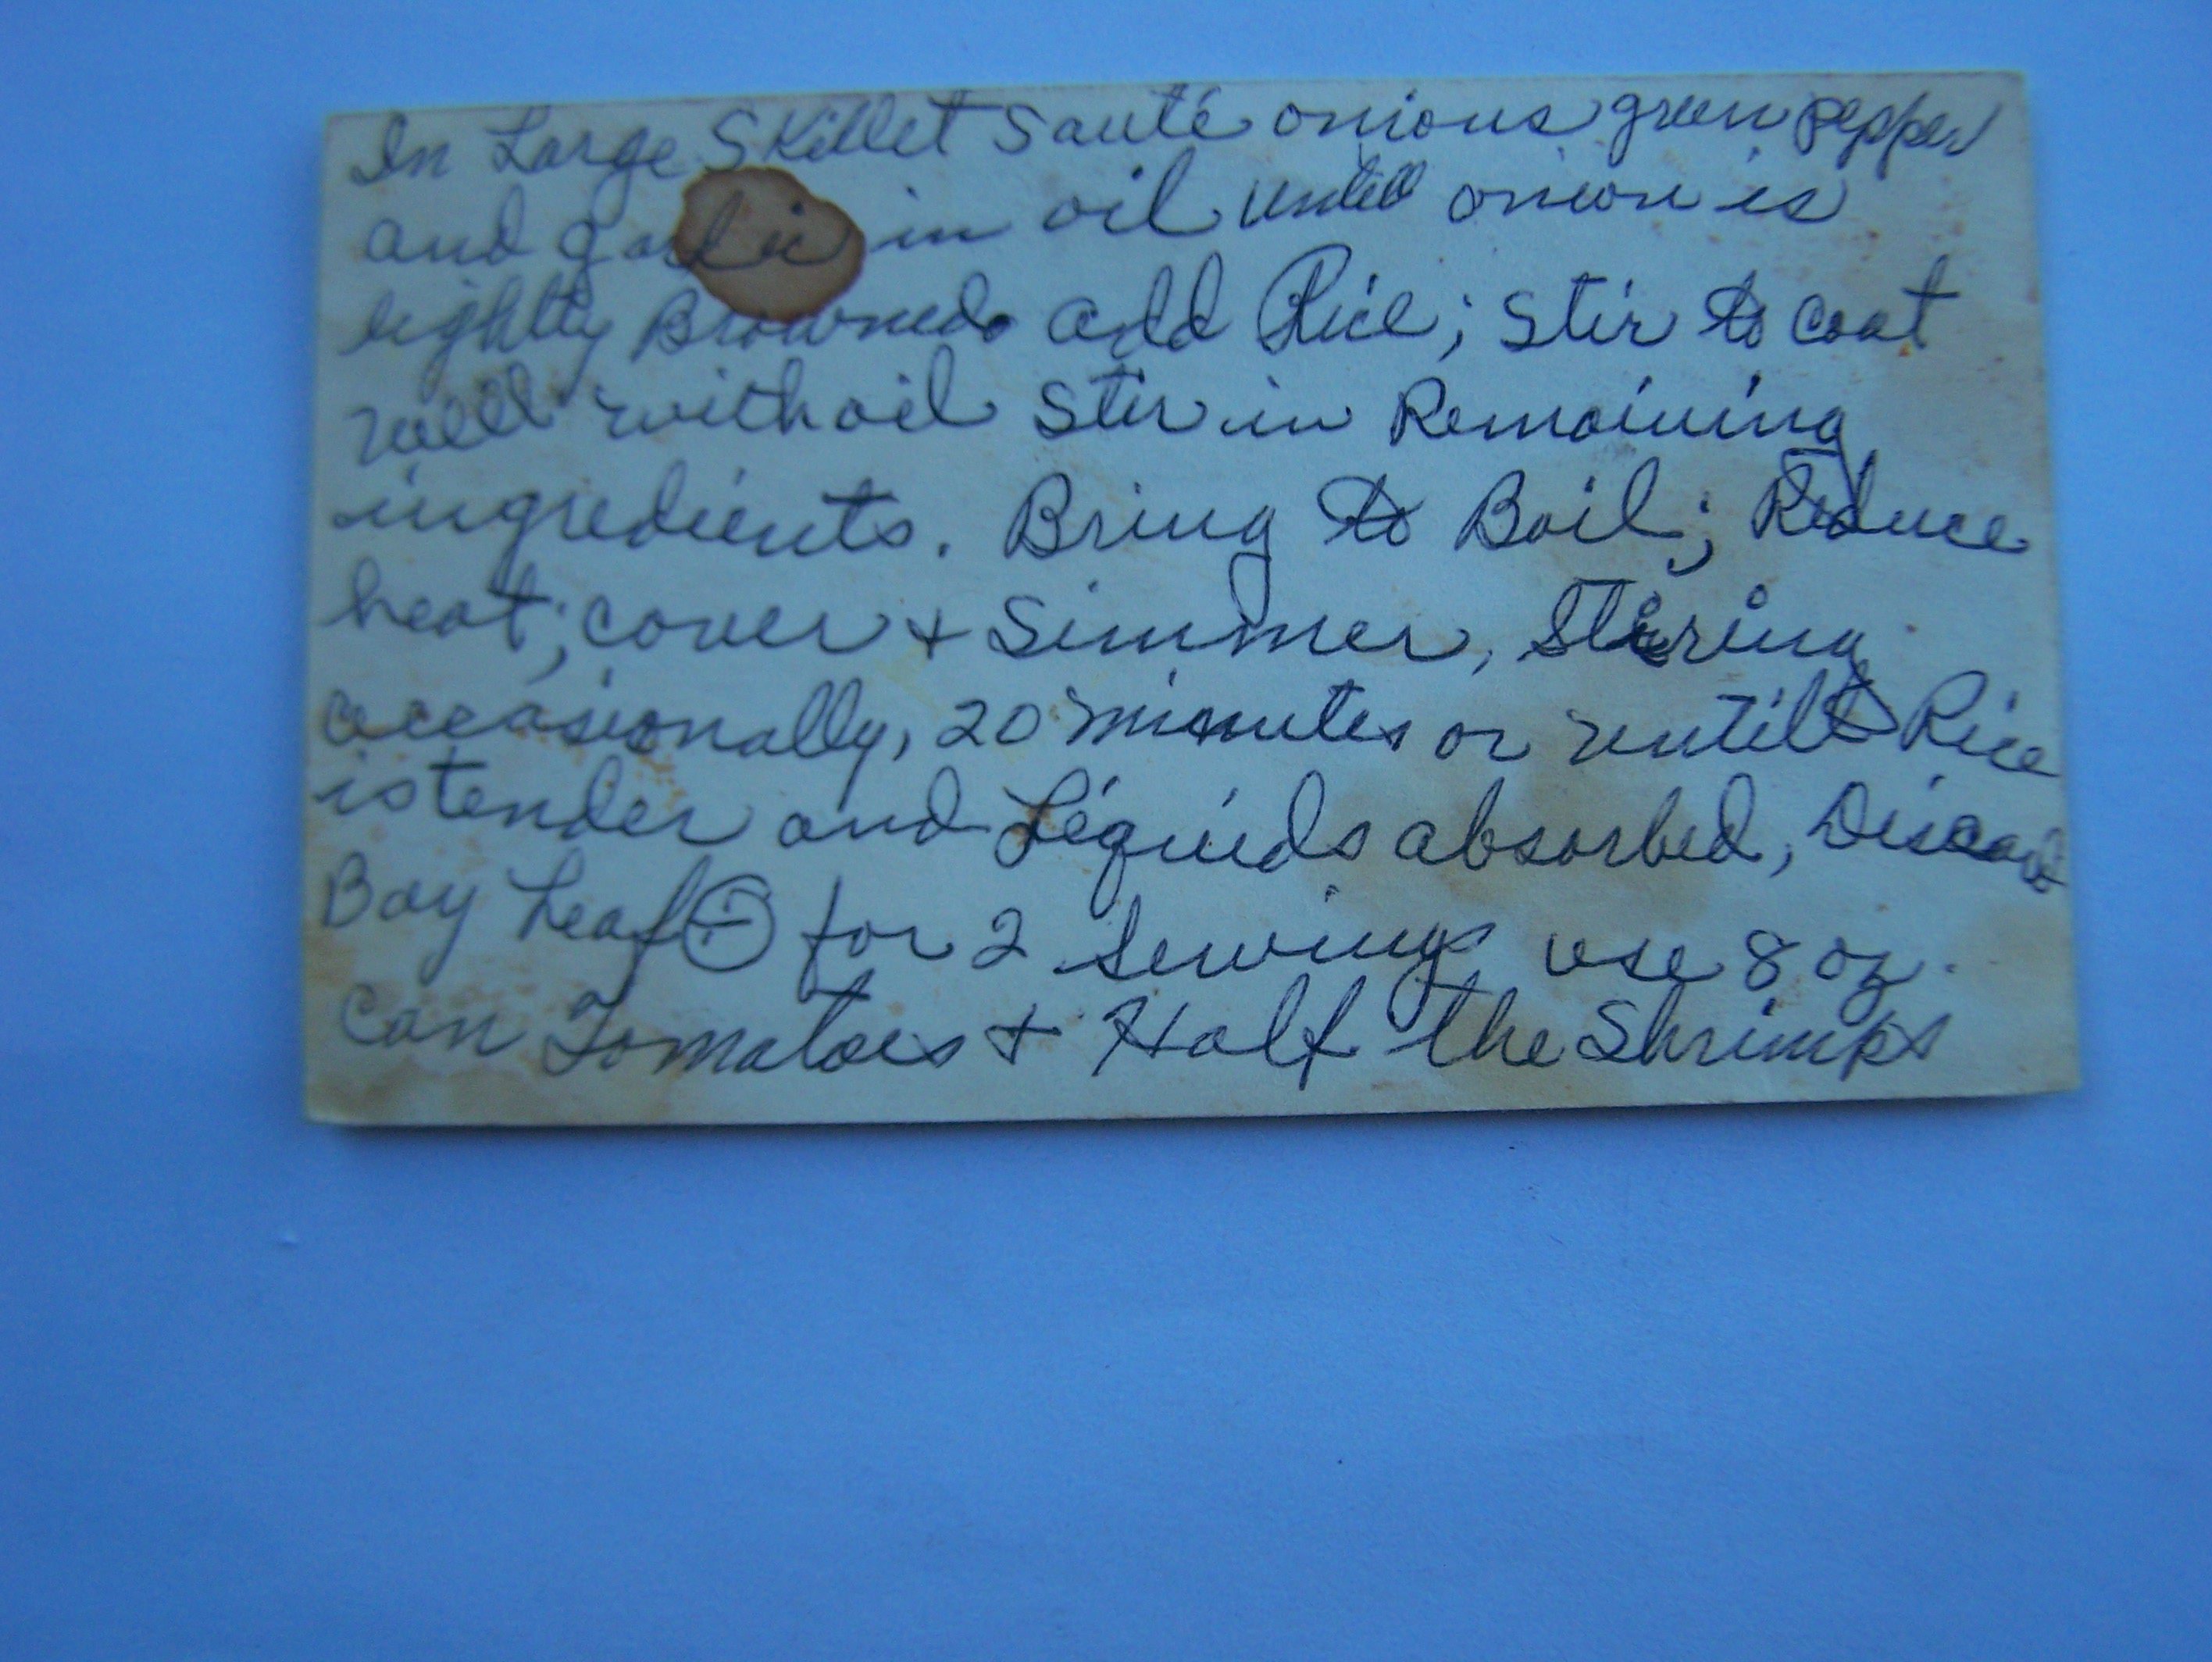 In Large Skillet Sauté onions green pepper
and garlic in oil untill onion is
lightly Browned. add Rice; Stir to coat
well with oil Stir in Remaining
ingredients. Bring to Boil; Reduce
heat; cover + Simmer, Stiring
occasionally, 20 minutes or until Rice
is tender and Liquids absorbed, Discard
Bay Leaf for 2 Serwings use 8 oz.
Can Tomatoes + Half the Shrimps